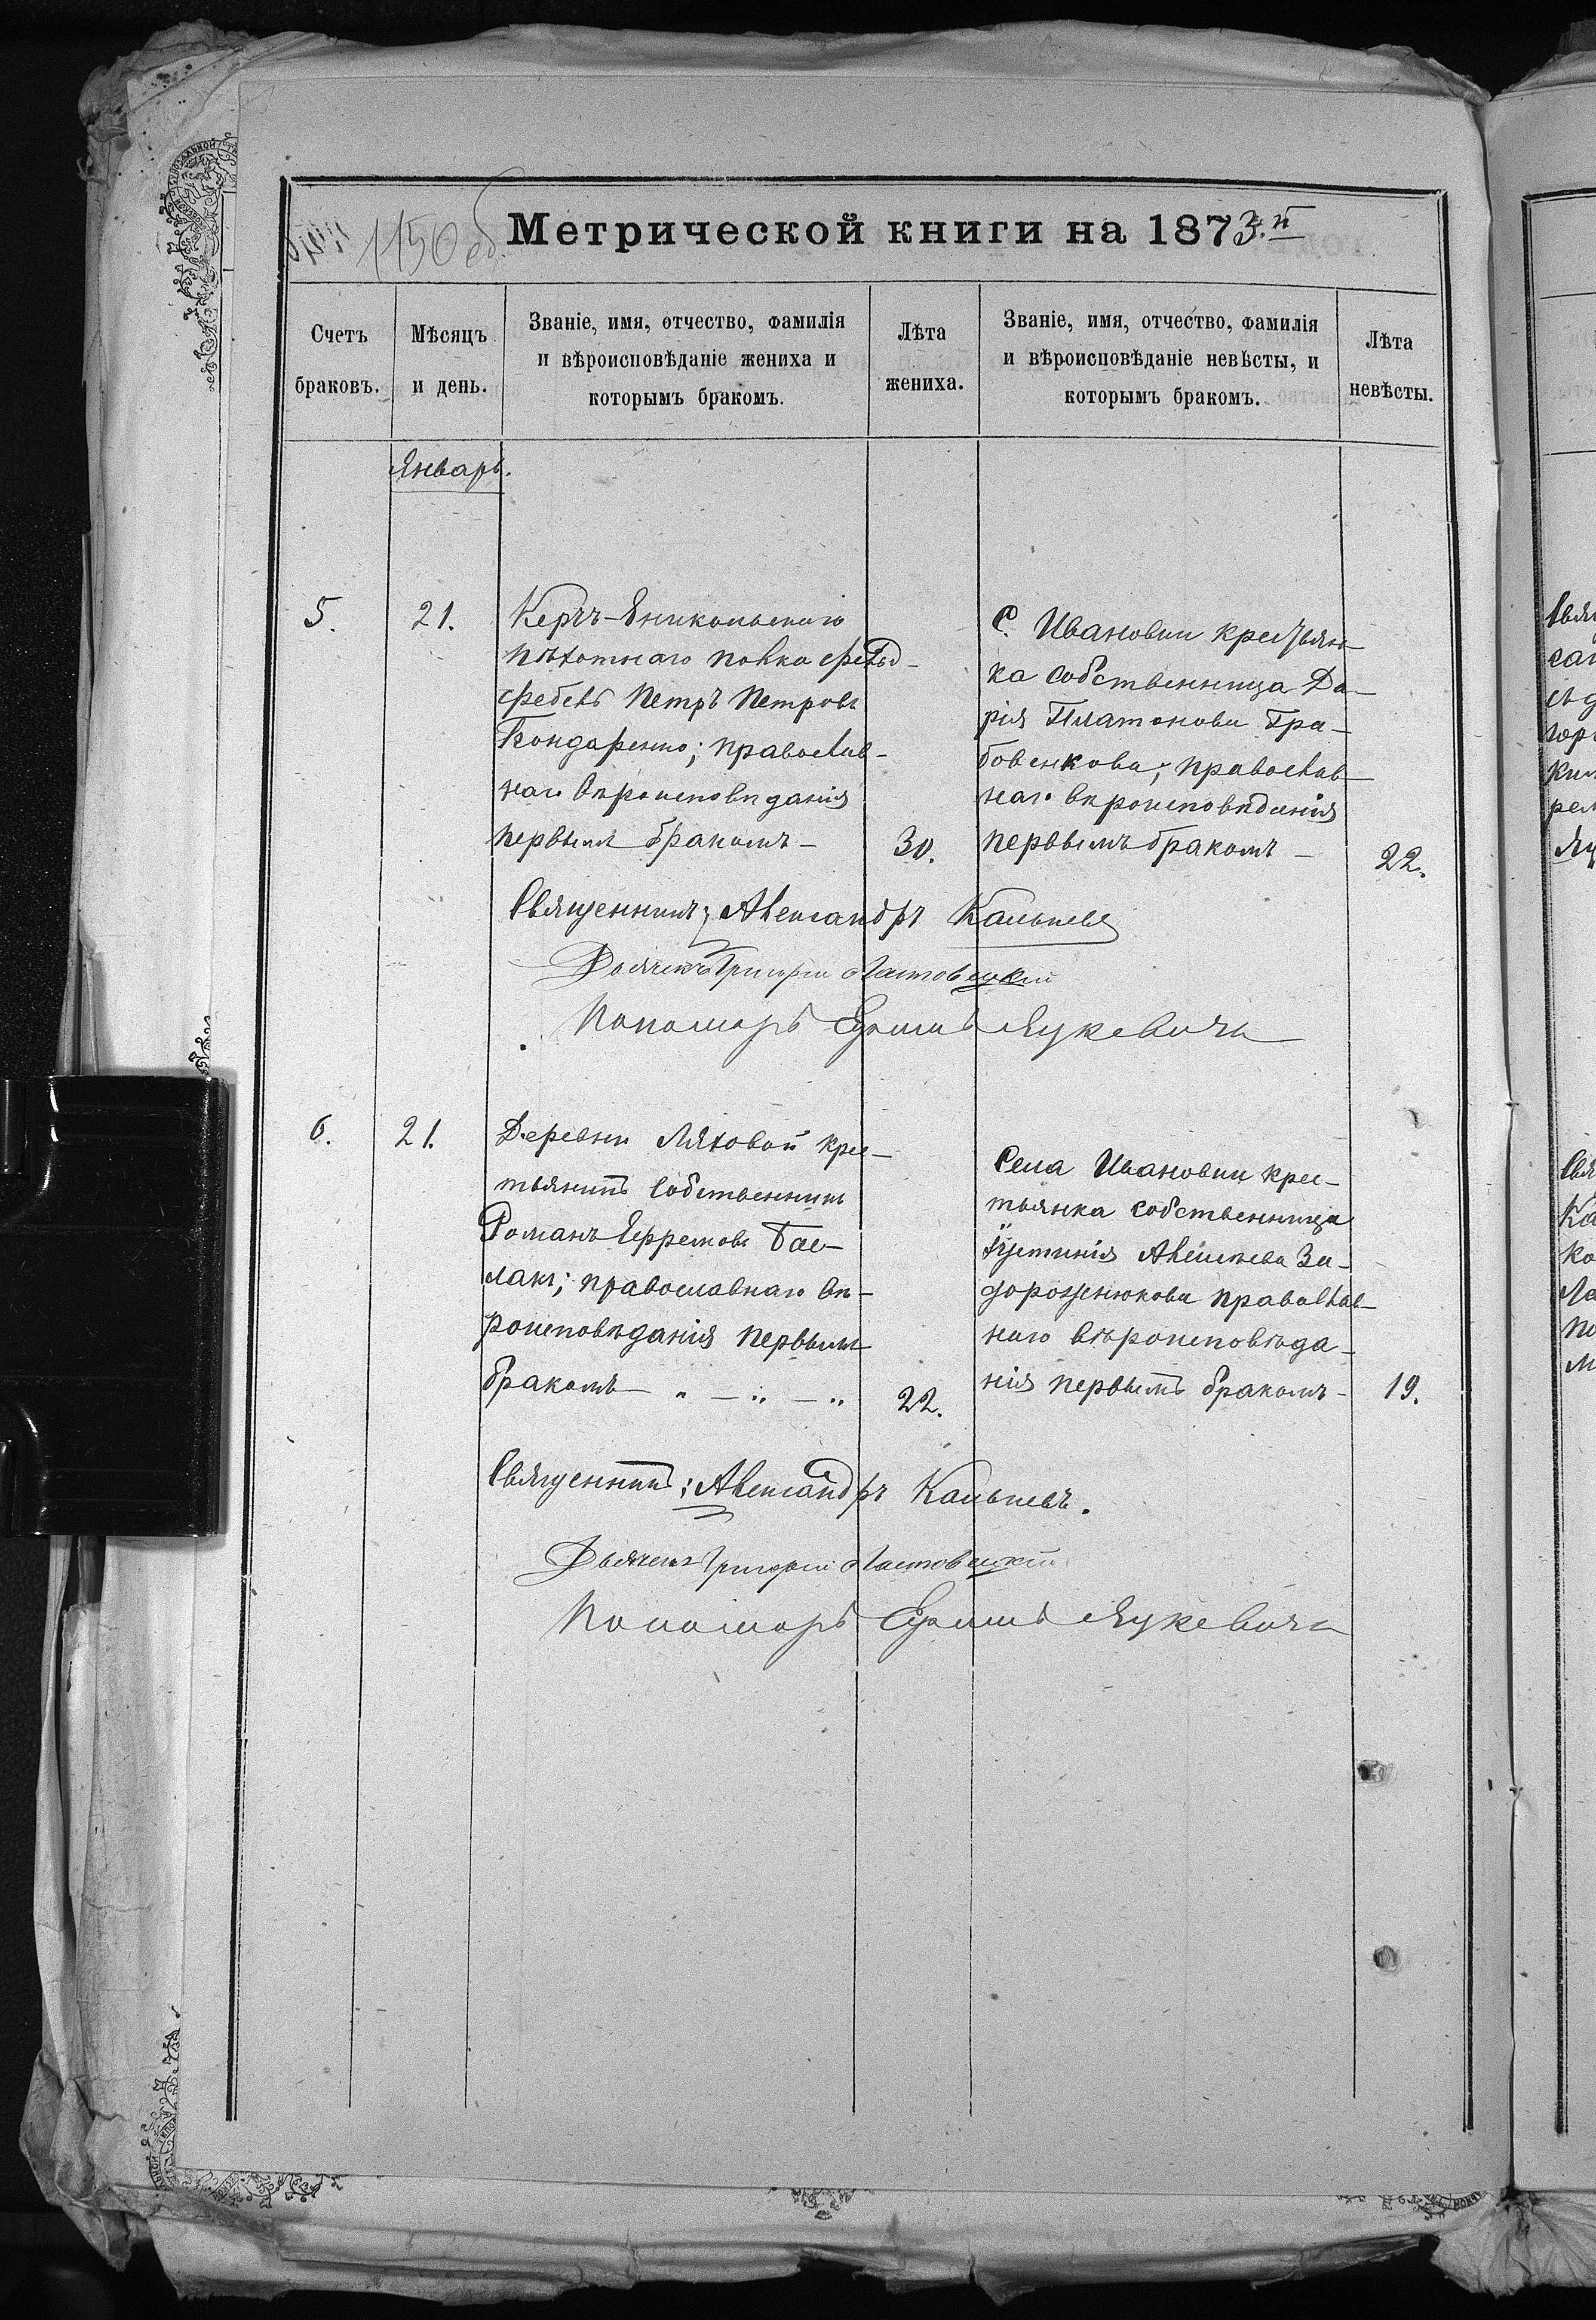 1150 об.
Метрической книги на 1873.й
Счетъ
браковъ.
Мѣсяцъ
и день.
Званіе, имя, отчество, фамилія
и вѣроисповѣданіе жениха и
которымъ бракомъ.
Лѣта
жениха.
Званіе, имя, отчество, фамилія
и вѣроисповѣданіе невѣсты, и
которымъ бракомъ.
Лѣта
невѣсты.
Январь.
5.
21.
Керчъ-Еникольскаго
пѣхотнаго полка фельд-
фебель Петръ Петровъ
Бондаренко; православ-
наго вѣроисповѣданія
первымъ бракомъ –
30.
С. Ивановки крестьян-
ка собственница Да-
рія Платонова Гра-
бовенкова; православ-
наго вѣроисповѣданія
первымъ бракомъ –
22.
Священникъ; Александръ
Дьячекъ Григорій Ластовецкій
Пономарь Лукевичъ
6.
21.
Деревни Ляховой крес-
тьянинъ собственникъ
Романъ Ефремовъ Бас-
лакъ; православнаго вѣ-
роисповѣданія первымъ
бракомъ – „ – „ – „
22.
Села Ивановки крес-
тьянка собственница
Іустинія Алексѣева За-
дорожнюкова православ-
наго вѣроисповѣда-
нія первымъ бракомъ –
19.
Священникъ; Александръ
Дьячекъ Григорій Ластовецкій
Пономарь Лукевичъ